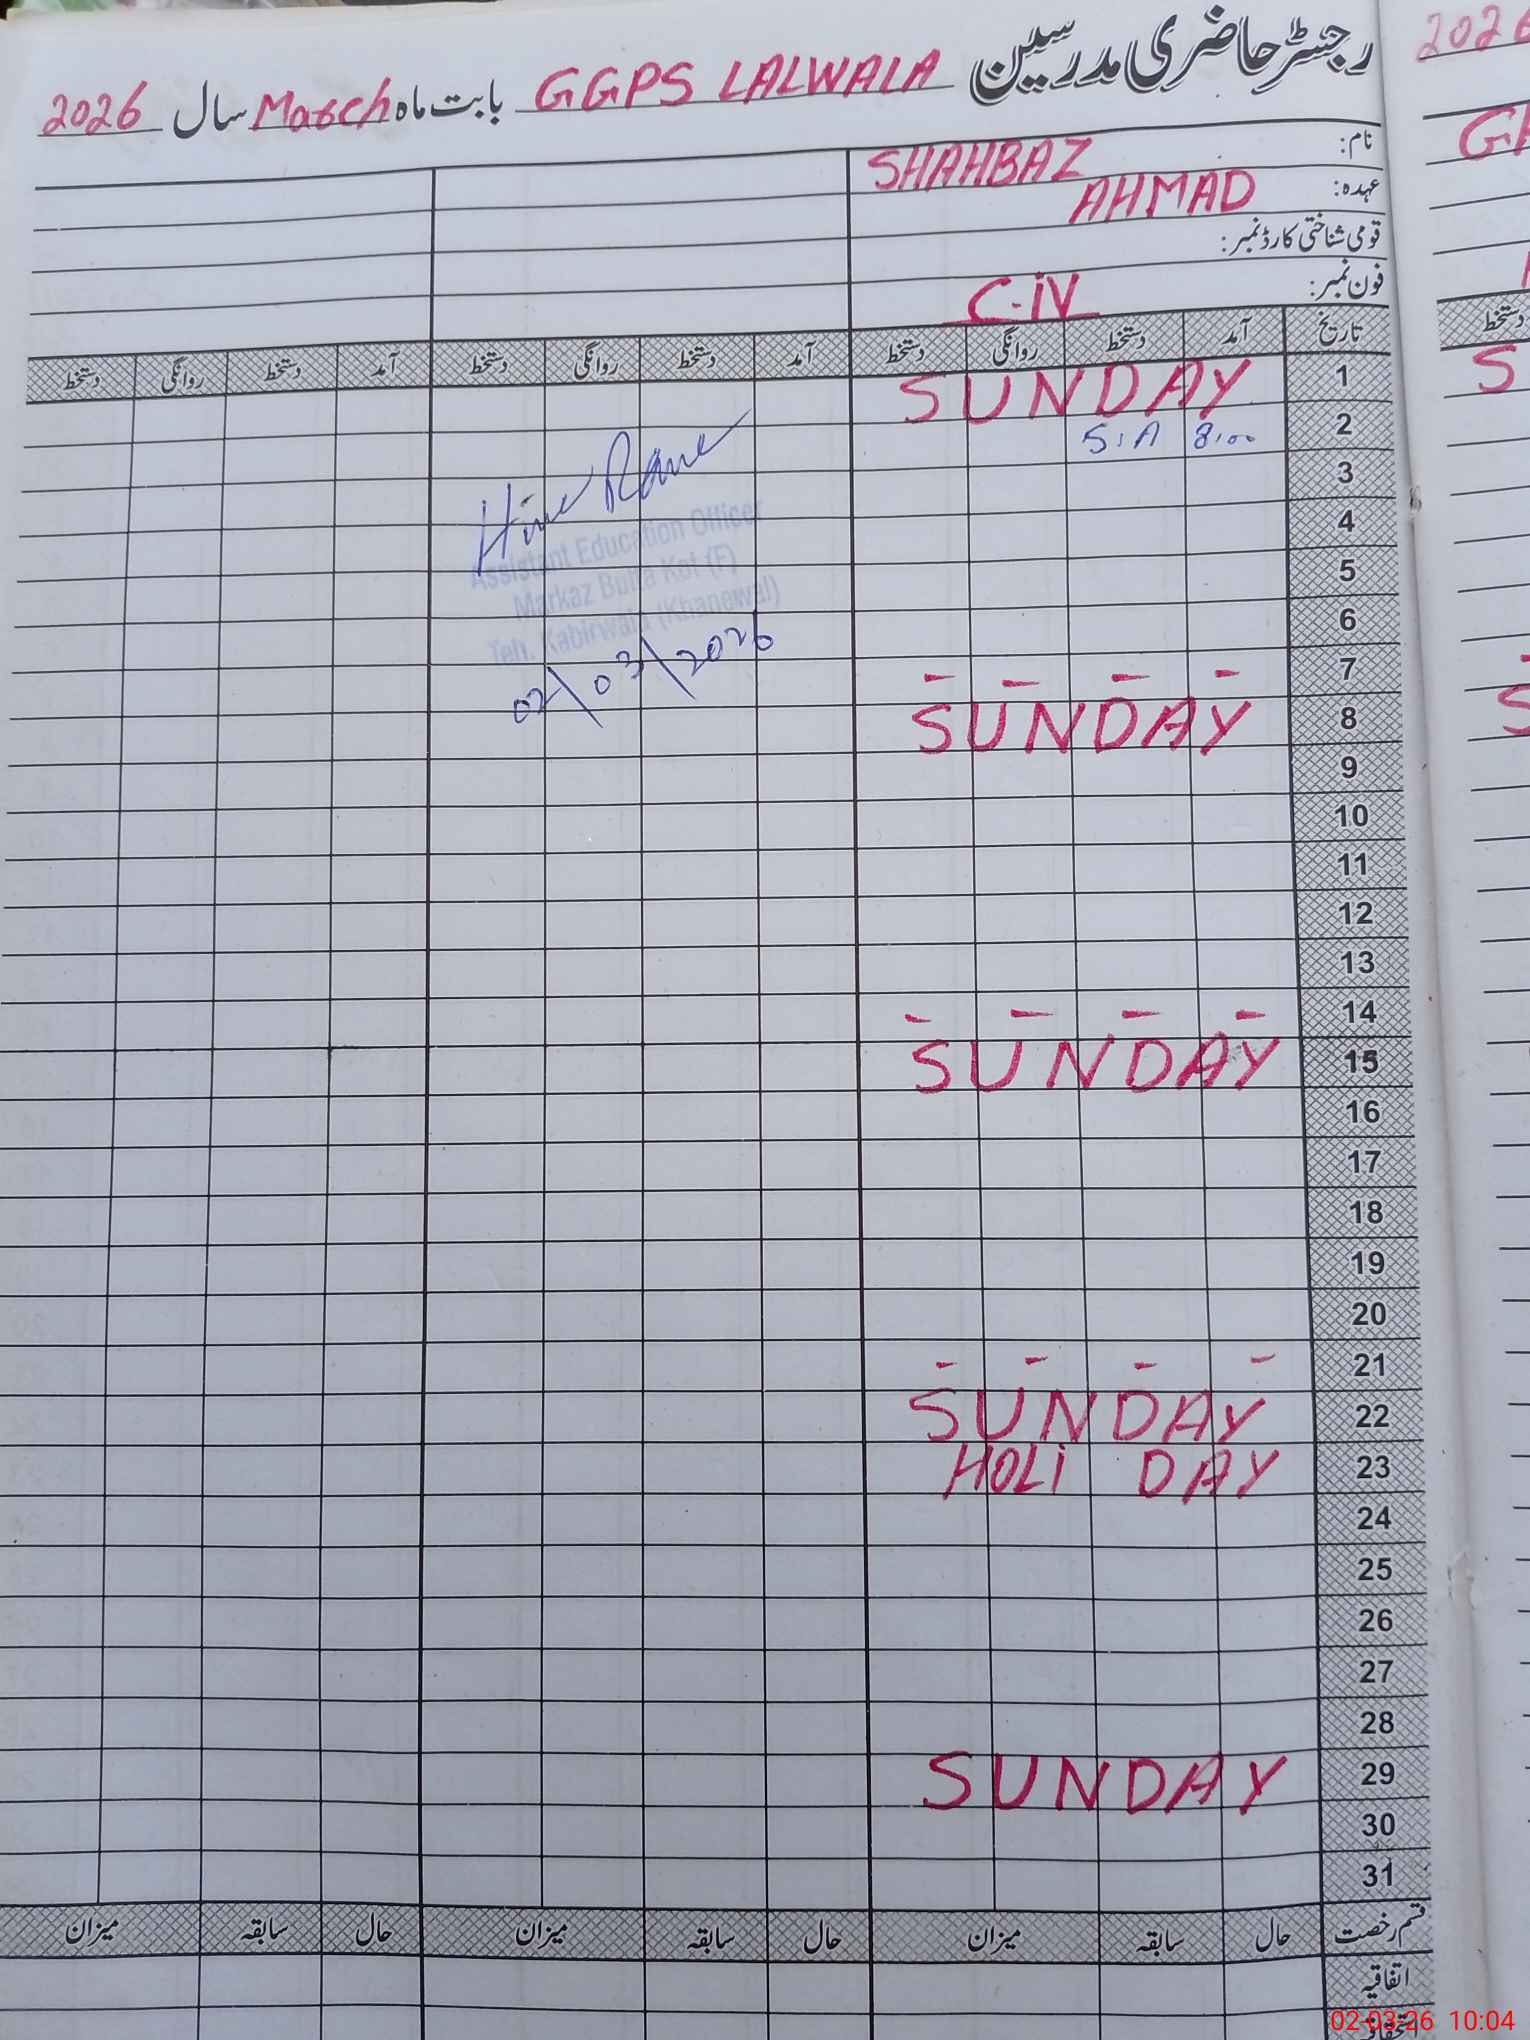 رجسٹر حاضری مدرسین GGPS LALWALA بابت ماہ March سال 2026
نام: SHAHBAZ
عہدہ: AHMAD
قومی شناختی کارڈ نمبر:
فون نمبر: C-iV
تاریخ آمد دستخط روانگی دستخط آمد دستخط روانگی دستخط آمد دستخط روانگی دستخط
1 SUNDAY
2 8:00 S:A
3
4
5
6
7 - - - -
8 SUNDAY
9
10
11
12
13
14 - - - -
15 SUNDAY
16
17
18
19
20
21 - - - -
22 SUNDAY
23 HOLI DAY
24
25
26
27
28
29 SUNDAY
30
31
Assistant Education Officer
Markaz Buta Kot (F)
Teh. Kabirwala (Khanewal)
02\03\2026
قسم رخصت حال سابقہ میزان حال سابقہ میزان حال سابقہ میزان
اتفاقیہ
2026
دستخط
S
S
02-03-26 10:04